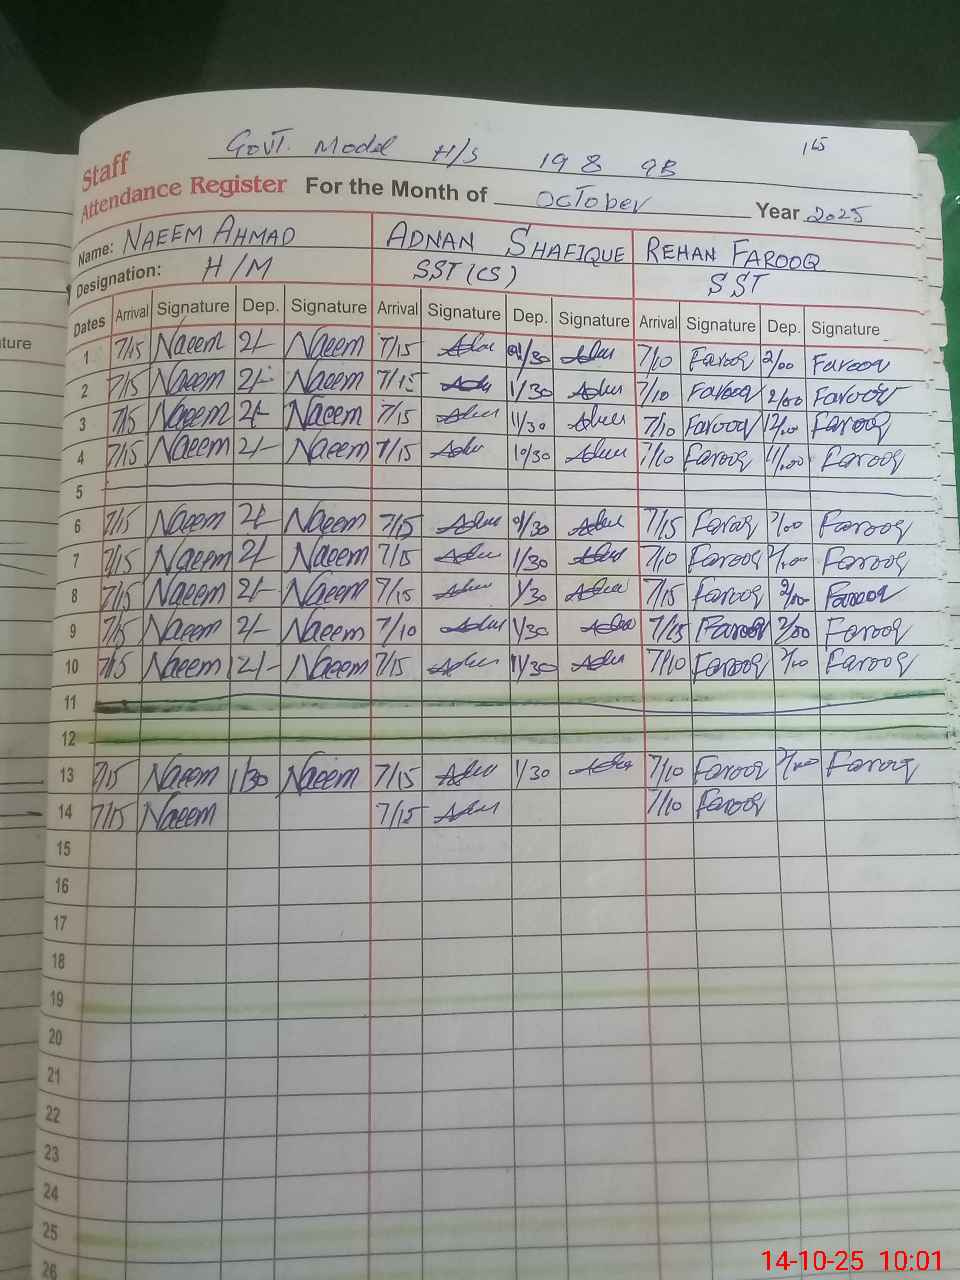 GOVT. Model H/S 198 GB
Staff
Attendance Register For the Month of October Year 2025
Name: NAEEM AHMAD ADNAN SHAFIQUE REHAN FAROOQ
Designation: H/M SST(CS) SST
Dates Arrival Signature Dep. Signature Arrival Signature Dep. Signature Arrival Signature Dep. Signature
ture
1 7/15 Naeem 2/- Naeem 7/15 /30 7/10 Farooq 2/00 Farooq
2 7/15 Naeem 2/- Naeem 7/15 1/30 7/10 Farooq 2/00 Farooq
3 7/15 Naeem 2/- Naeem 7/15 11/30 7/10 Farooq 12/00 Farooq
4 7/15 Naeem 2/- Naeem 7/15 10/30 7/10 Farooq 11/00 Farooq
5
6 7/15 Naeem 2/- Naeem 7/15 /30 7/15 Farooq 2/00 Farooq
7 7/15 Naeem 2/- Naeem 7/15 1/30 7/10 Farooq Farooq
8 7/15 Naeem 2/- Naeem 7/15 1/30 7/15 Farooq 2/00 Farooq
9 7/15 Naeem 2/- Naeem 7/10 1/30 7/15 Farooq 2/00 Farooq
10 7/15 Naeem 12/- Naeem 7/15 11/30 7/10 Farooq Farooq
11
12
13 7/15 Naeem 1/30 Naeem 7/15 1/30 7/10 Farooq Farooq
14 7/15 Naeem 7/15 7/10 Farooq
15
16
17
18
19
20
21
22
23
24
25
26
14-10-25 10:01